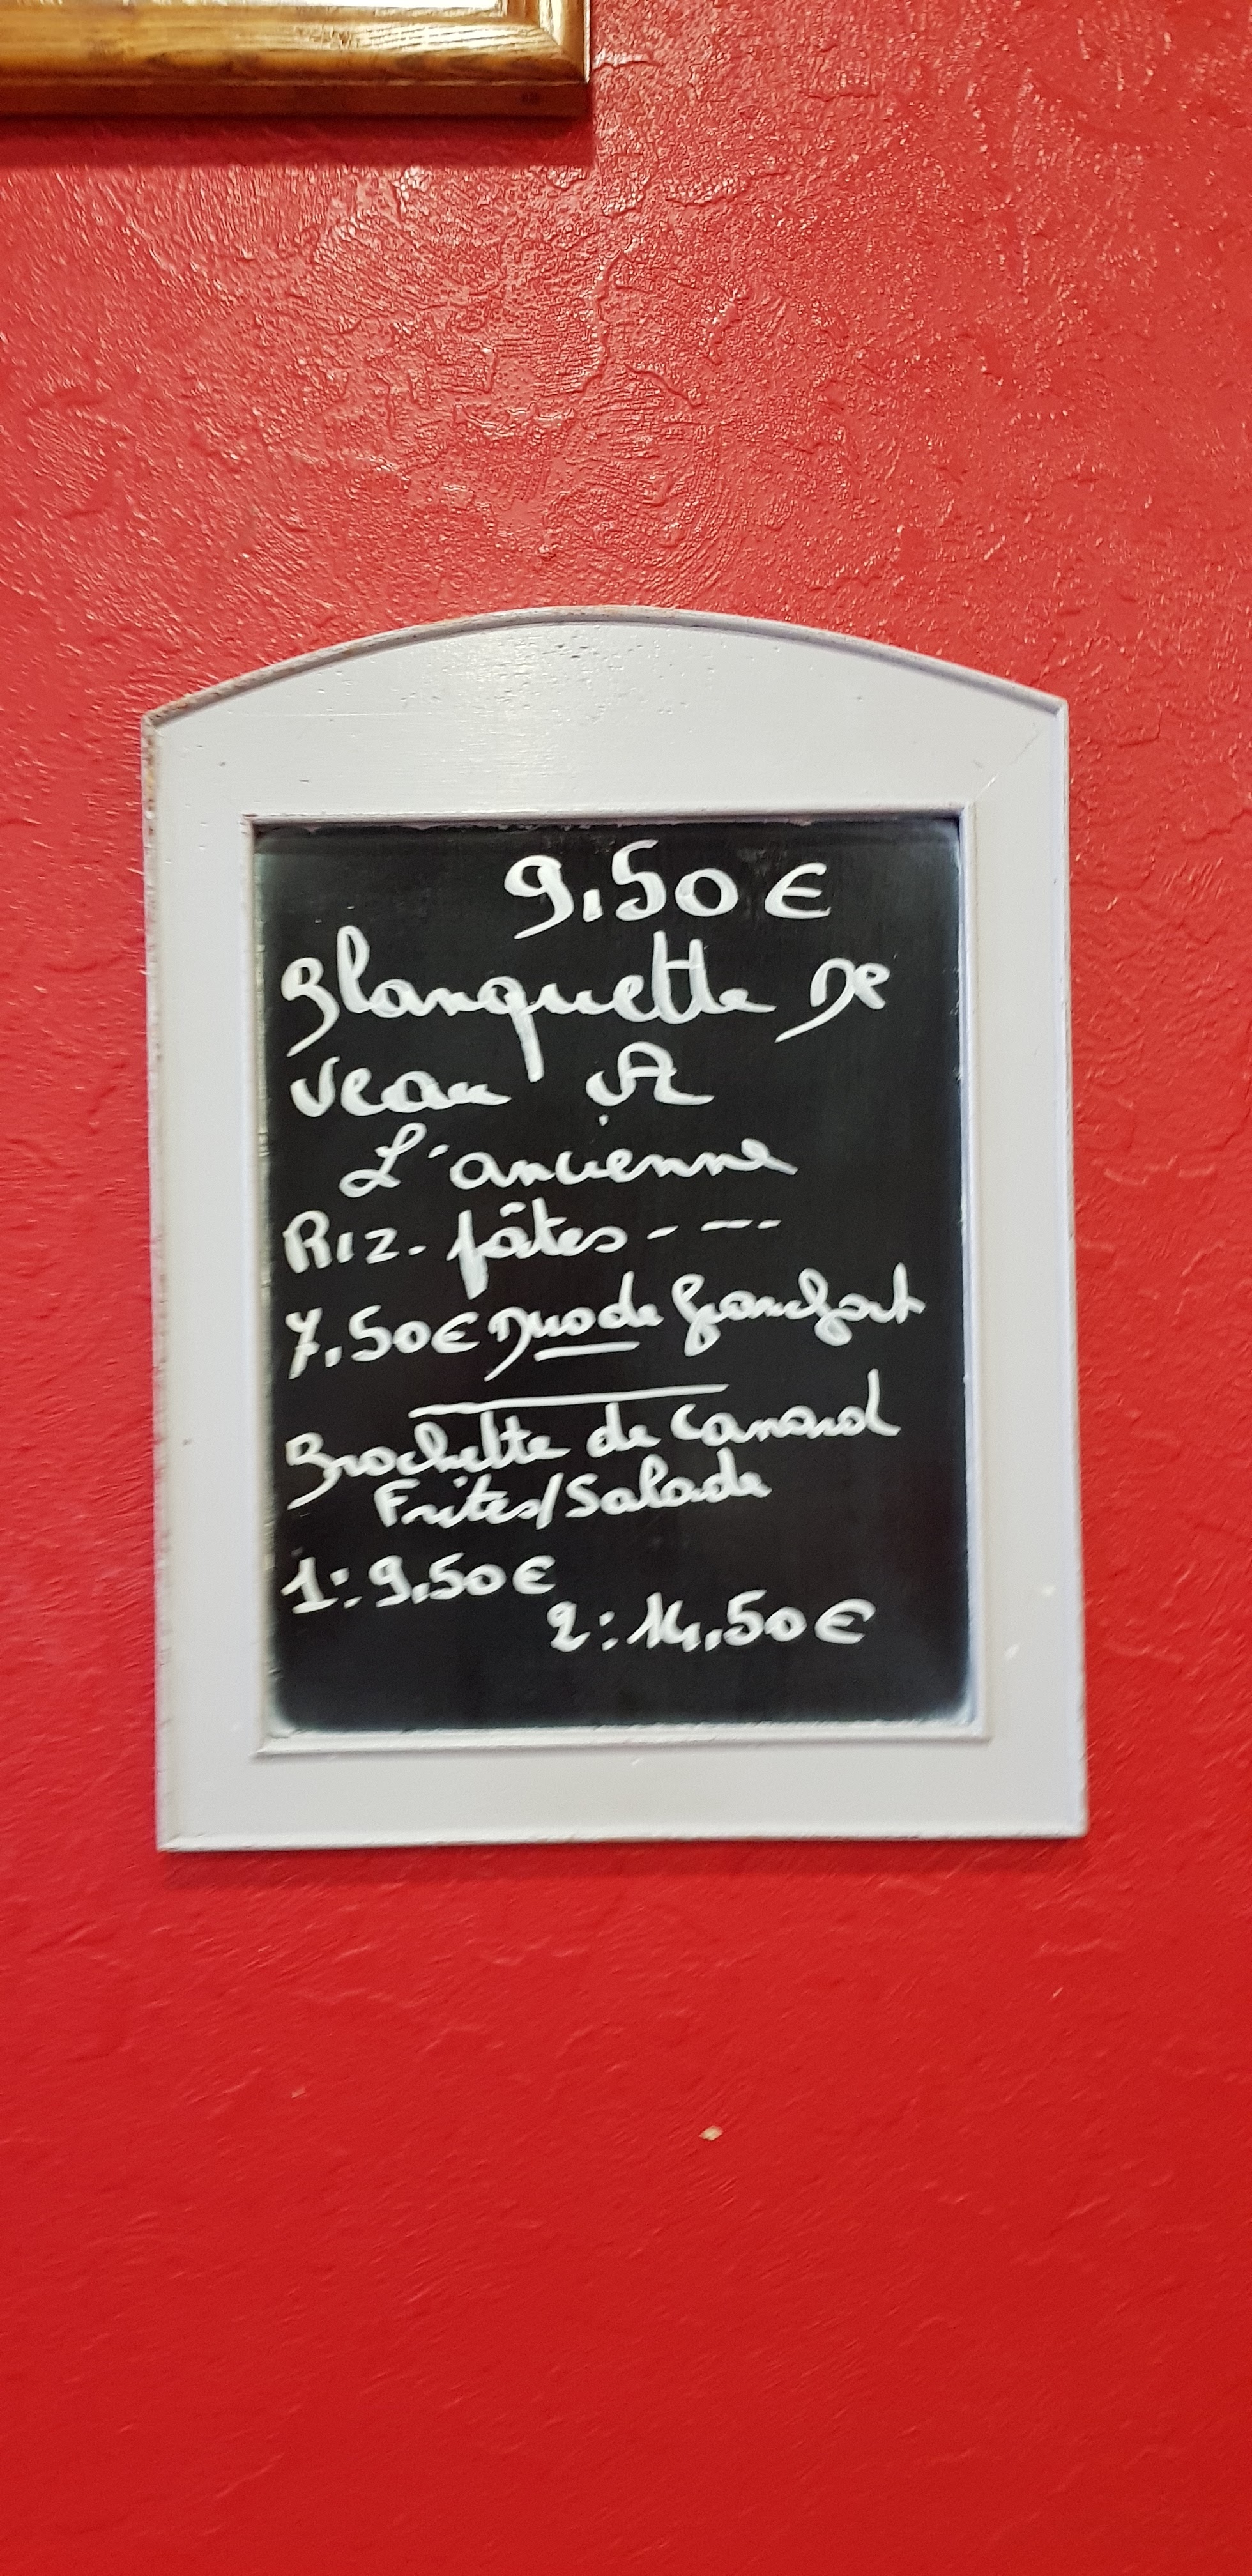 9,50€
Blanquette De
veau A
L'ancienne
Riz - pâtes - - - -
7,50€ Duo de Francfort
Brochette de Canard
Frites/Salade
1: 9,50€
2: 14,50€